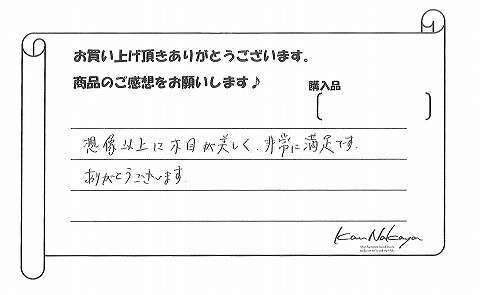 お買い上げ頂きありがとうございます。
商品のご感想をお願いします♪
購入品
想像以上に木目が美しく、非常に満足です。
ありがとうございます。
Kan Nakaya